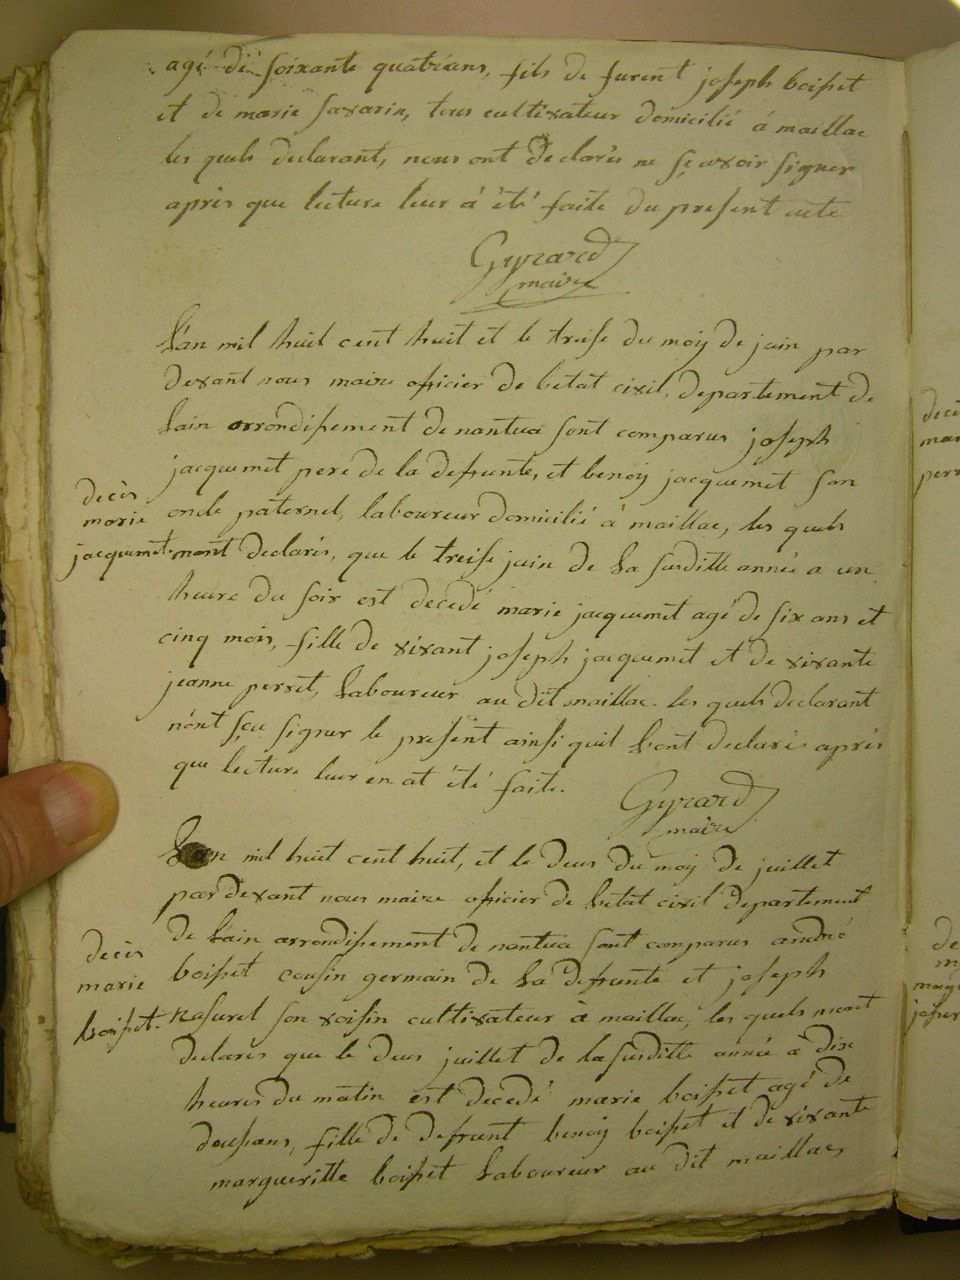 agé de soixante quatre ans, fils de furent joseph boisset
et de marie savarin, tous cultivateur domicilié á maillac
les quels declarant, nous ont declarés ne sçavoir signer
après que lecture leur á été faite du present acte
Gyrard
maire
L'an mil huit cent huit et le treise du moy de juin par
devant nous maire oficier de l'etat civil, departement de
Lain arrondissement de nantua sont comparus joseph
jacquemet pere de la defunte, et benoy jacquemet son
oncle paternel, laboureur domicilié á maillac, les quels
mont declarés, que le treise juin de la susditte année a un
heure du soir est decedé marie jacquemet agé de six ans et
cinq mois, fille de vivant joseph jacquemet et de vivante
jeanne perret, Laboureur au dit maillac. les quels declarant
n'ont sçu signer le present ainsi quil Lont declaré après
que lecture leur en at été faite.
Gyrard
maire
decès
marie
jacquemet
L'an mil huit cent huit, et le deus du moy de juillet
par devant nous maire oficier de l'etat civil departement
de Lain arrondissement de nantua sont comparus andré
boisset cousin germain de la defunte et joseph
son voisin cultivateur à maillac, les quels mont
declarés que le deus juillet de la susditte année á dix
heures du matin est decedé marie boisset agé de
fille de defunt benoy boisset et de vivante
margueritte boisset Laboureur au dit maillac
decès
marie
boisset.